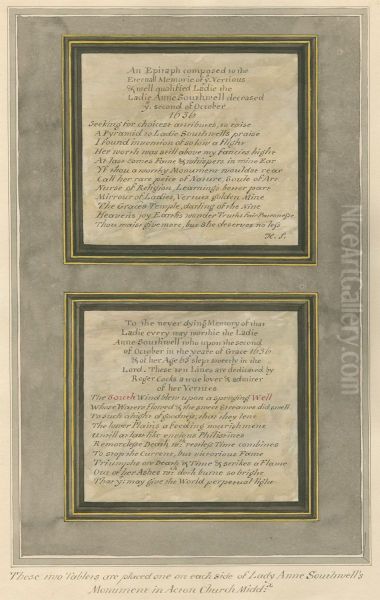 An Epitaph composed to the
Eternall Memorie of yͤ Vertious
& well qualified Ladie the
Ladie Anne Southwell deceased
yͤ second of October
1636
Seeking for choicest attributes, to raise
A Pyramid to Ladie Southwell's praise
I found invention of so low a flight
Her worth was still above my fancies hight
At last comes Fame & whispers in mine Ear
Yf thou a worthy Monument wouldst rear
Call her rare peice of Nature, Soule of Art
Nurse of Religion, Learnings better part
Mirrour of Ladies, Vertues golden Mine
The Graces Temple, darling of the Nine
Heavens joy Earths wonder Truths
Thou maist give more, but She deserves no less
To the never dying Memory of that
Ladie every way worthie the Ladie
Anne Southwell who upon the second
of October in the yeare of Grace 1636
& of her Age 63 slept sweetly in the
Lord. These ten Lines are dedicated by
Roger Cocks a true lover & admirer
of her Vertues
The South Wind blew upon a springing Well
Whose Waters flowed & the sweet streames did swell
To such a hight of goodness, that they lent
The lower Plains a feeding nourishment
Untill at last like envious Philistines
Remorcless Death wᵗʰ restless Time combines
To stop the Current, but victorious Fame
Triumphs ore Death & Time & strikes a Flame
Out of her Ashes wᶜʰ doth burne so bright
That yᵗ may give the World perpetual light
These two Tablets are placed one on each side of Lady Anne Southwell's
Monument in Acton Church Middˣ